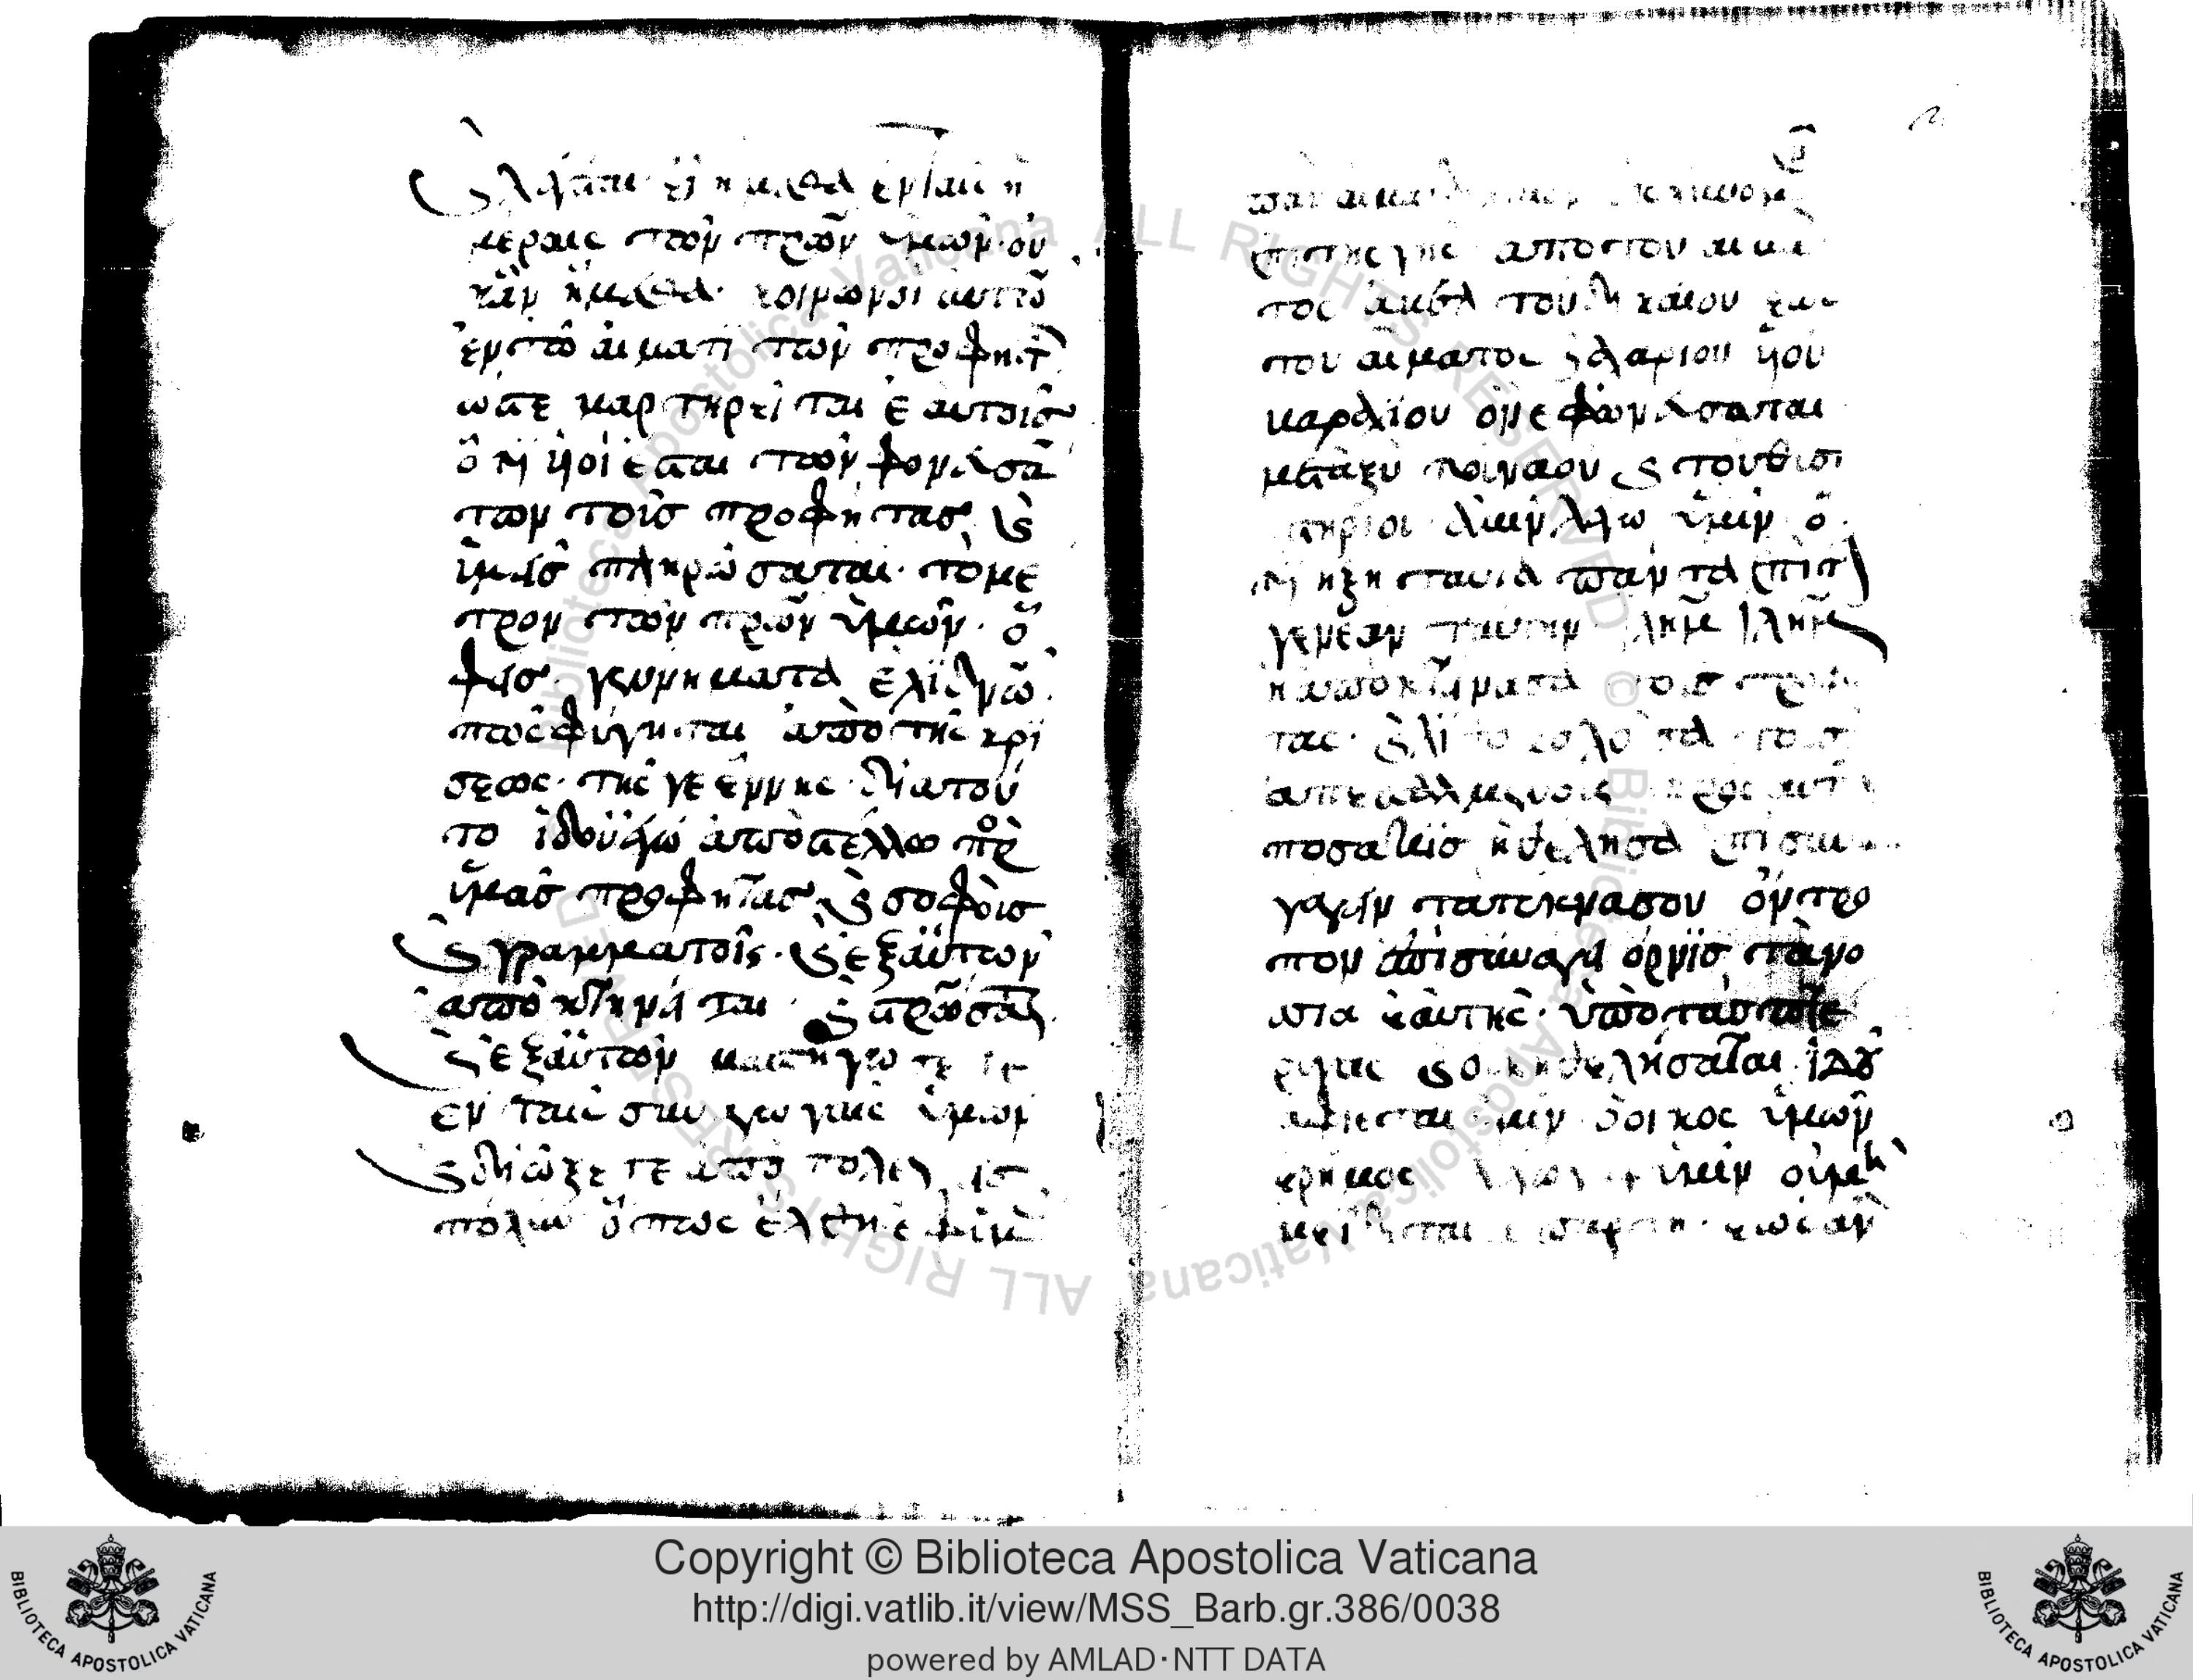 ϛ λέγεται εἰ ἡμεθα ἐν ταῖς ἡ
μεραις τῶν πρῶν ὑμῶν· οὐ
κἂν ἤμεθα· κοινωνοὶ αὐτῶ
ἐν τῶ αἵματι τῶν προφητ
ὥστε μαρτηρεῖται ἑαυτοῖσ
ὅτι ὑοί ἐσται τῶν φονευσά
των τοῖσ προφήτασ, ϛ
ὑμεῖσ πληρώσαται· τὸ με
τρον τῶν πρῶν ὑμῶν· ὄ
φεισ· γεννήματα ἐχιδνῶ
πῶς φύγηται ἀπὸ τῆς κρί
σεως· τῆς γεέννης· διατοῦ
το ἰδοῦ ἐγώ ἀποστέλλω πρ
ὑμᾶσ προφήτασ, ϛ σοφοῖσ
ϛ γραμματοῖς· ϛ ἐξαὐτῶν
ἀποκτηνεῖται· ϛ στρῶσαι
ϛ ἐξαὐτῶν μαστηγω
ἐν ταῖς συναγωγαῖς ὑμῶν
ϛ διώξετε ἀπὸ πόλε
πόλιν ὅπως ἔλθη ἐφ ὑμ
παν αιμα
ἐπι της γῆς ἀπο του αιμα
τος ἄβελ του δικαίου εως
του αἵματος ζαχαρίου ὑοῦ
μαραχίου ὃν ἐφωνεύσαται
μεταξὺ του ναοῦ ϛ τοῦ θισι
τηρίου ἀμὴν λέγω ὑμῖν ὅ
τι ηξη ταυτα παντα ἐπὶ τ
γενεὰν ταυτην ιλημ ιλημ
η αποκτενασα τοισ προφ
τας· ϛ λιθοβολοῦσα τοισ
απεσταλμενοις προς αυτ
ποσακεισ ἠθελησα ἐπισυν
γαγεῖν τα τεκνα σου ὃν τρο
πον ἐπισυναγει ὄρνισ τὰ νο
σια ἑαὐτῆς· ὑπὸ τὰσ πτε
ριγας ϛ οὐκ ηθελήσαται ἰδοὺ
αφιεται υμιν ὁ οἶκος ὑμῶν
ερημος λεγω ὑμῖν οὐ μὴ
εως ἂν
Copyright © Biblioteca Apostolica Vaticana
http://digi.vatlib.it/view/MSS_Barb.gr.386/0038
powered by AMLAD·NTT DATA
BIBLIOTECA APOSTOLICA VATICANA
BIBLIOTECA APOSTOLICA VATICANA